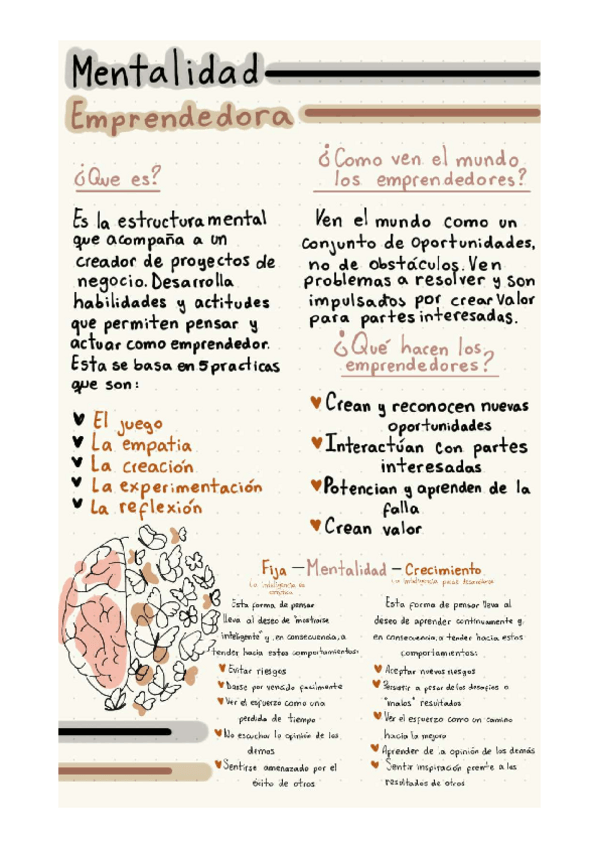 Mentalidad
Emprendedora
¿Que es?
Es la estructura mental
que acompaña a un
creador de proyectos de
negocio. Desarrolla
habilidades y actitudes
que permiten pensar y
actuar como emprendedor.
Esta se basa en 5 practicas
que son:
El juego
La empatia
La creación
La experimentación
La reflexión
¿Como ven el mundo
los emprendedores?
Ven el mundo como un
conjunto de oportunidades,
no de obstáculos. Ven
problemas a resolver y son
impulsados por crear valor
para partes interesadas.
¿Qué hacen los
emprendedores?
Crean y reconocen nuevas
oportunidades
Interactúan con partes
interesadas
Potencian y aprenden de la
falla
Crean valor
Fija — Mentalidad — Crecimiento
La inteligencia es
estática
Esta forma de pensar
lleva al deseo de "mostrarse
inteligente" y en consecuencia, a
tender hacia estos comportamientos:
Evitar riesgos
Darse por vencido facilmente
Ver el esfuerzo como una
perdida de tiempo
No escuchar la opinión de los
demas
Sentirse amenazado por el
éxito de otros
La inteligencia puede desarrollarse
Esta forma de pensar lleva al
deseo de aprender continuamente y,
en consecuencia, a tender hacia estos
comportamientos:
Aceptar nuevos riesgos
Persistir a pesar de los desafios o
"malos" resultados
Ver el esfuerzo como un camino
hacia la mejora
Aprender de la opinión de los demás
Sentir inspiración frente a los
resultados de otros